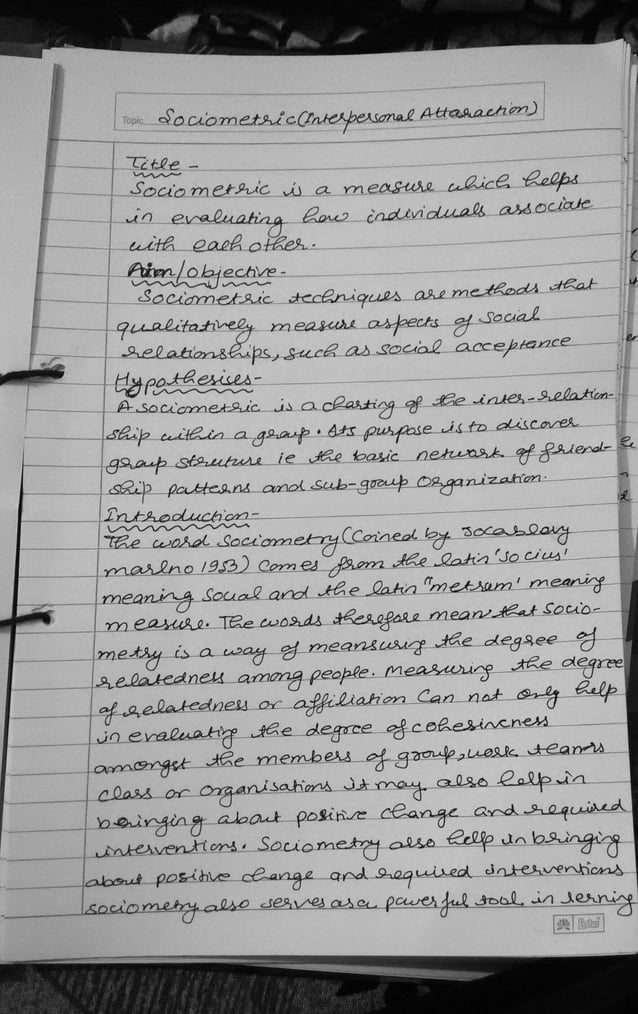 Topic Sociometric (Interpersonal Attaraction)
Title -
Sociometric is a measure which helps
in evaluating how individuals associate
with each other.
Aim/Objective-
Sociometric techniques are methods that
qualitatively measure aspects of social
relationships, such as social acceptance
Hypothesises-
A sociometric is a charting of the inter-relation-
ship within a group. Its purpose is to discover
group struture ie the basic network of friend-
ship patterns and sub-group organization.
Introduction-
The word sociometry (coined by
1953) comes from the latin 'socius'
meaning social and the latin "metram' meaning
measure. The words therefore mean that socio-
metry is a way of meansuring the degree of
relatedness among people. Measuring the degree
of relatedness or affiliation can not only help
in evaluating the degree of cohesiveness
amongst the members of group, work teams
class or organisations it may also help in
bringing about positive change and required
interventions. Sociometry also help in bringing
about positive change and required interventions
sociometry also serves as a powerful tool in lerning